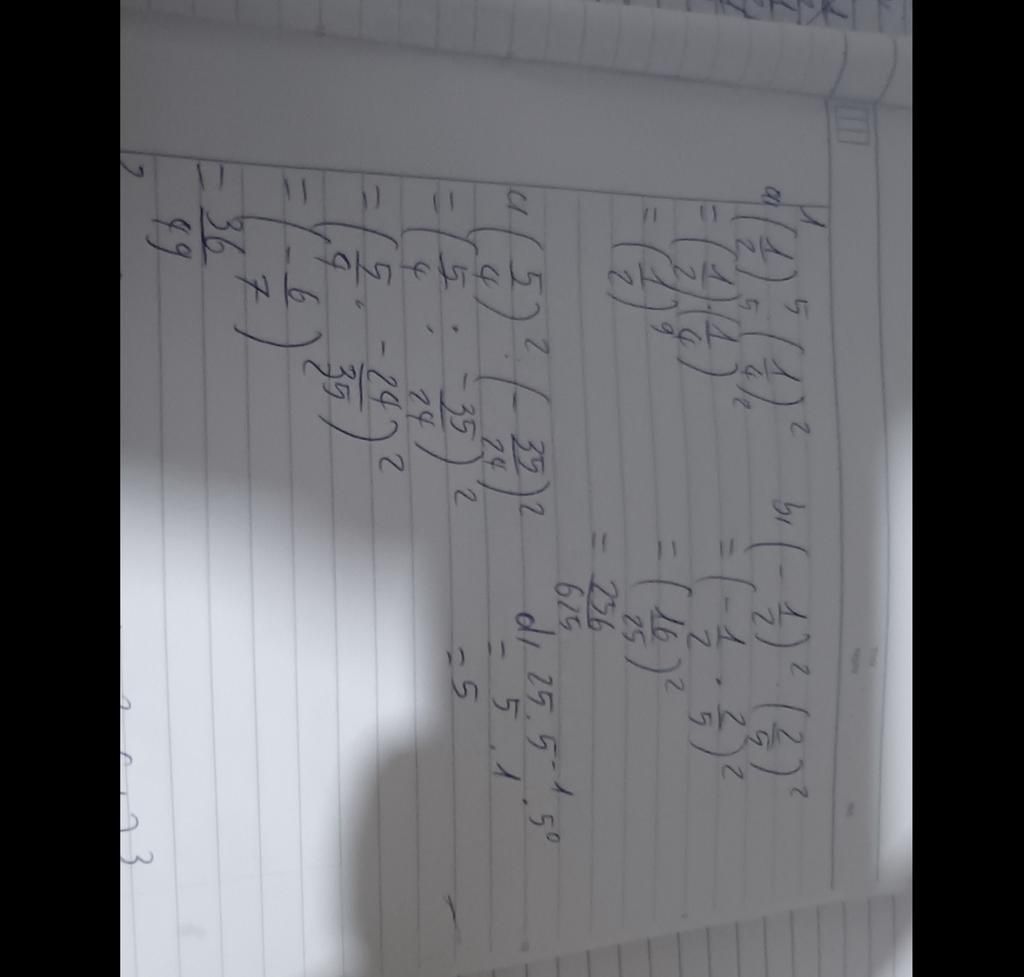 1
a, (1/2)^5 . (1/4)^2
= (1/2)^5 . (1/4)^2
= (1/2)^9
b, (-1/2)^2 . (2/5)^2
= (-1/2 . 2/5)^2
= (16/25)^2
= 256/625
c, (5/4)^2 : (-35/24)^2
= (5/4 : -35/24)^2
= (5/4 . -24/35)^2
= (-6/7)^2
= 36/49
d, 25 . 5^-1 . 5^0
= 5 . 1
= 5
2